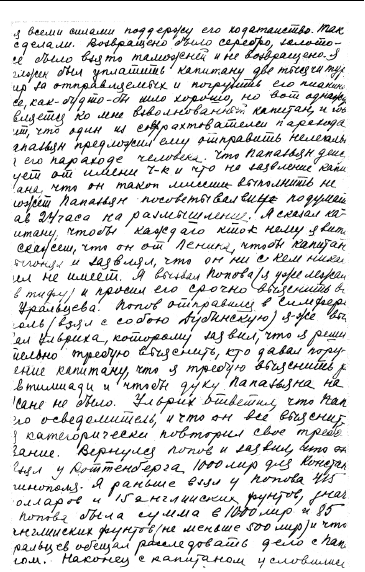 я всеми силами поддержу его ходатайство. Так
сделали. Возвращено было серебро, золото-
се было взято таможней и не возвращено. Я
лжен был уплатить капитану две тысячи тур.
ир за отправляемых и погрузить его пианино
се, как-будто-бы шло хорошо, но вот однажды
вляется ко мне взволнованный капитан и
ет, что один из сфрахтователей парохода
апазьян предложил ему отправить нелегаль
а его пароходе человека. Что Папазьян дей
ует от имени ч-к и что на заявление капи
ана, что он такой миссии выполнить не
ожет Папазьян посоветывал еще подумать
ав 24 часа на размышление. Я сказал ка-
итану, чтобы каждаго кто к нему явит
скажем, что он от Ленина, чтобы капитан
выгонял и заявлял, что он ни с кем никак
ел не имеет. Я вызвал Попова/я уже лежал
в тифу/ и просил его срочно выяснить в
Уральцева. Попов отправился в Симферо
оль/взял с собою Дубинскую/ я-же вы
ал Ульриха, которому заявил, что я реши
ельно требую выяснить, кто давал пору-
ение капитану, что я требую выяснить
втилиади и чтобы духу Папазьяна на
сане не было. Ульрих ответил, что Пап
го осведомитель, и что он все выяснит
я категорически повторил свое требо-
вание. Вернулся Попов и заявил, что он
взял у Роттенберга, 1000 лир для Констан
инополя. Я раньше взял у Попова 425
олларов и 15 английских фунтов, знач
Попова была сумма в 1000 лир и 85
нглийских фунтов/не меньше 500 лир/ и что
ральцев обещал расследовать дело с Пап.
гом. Наконец с капитаном условились